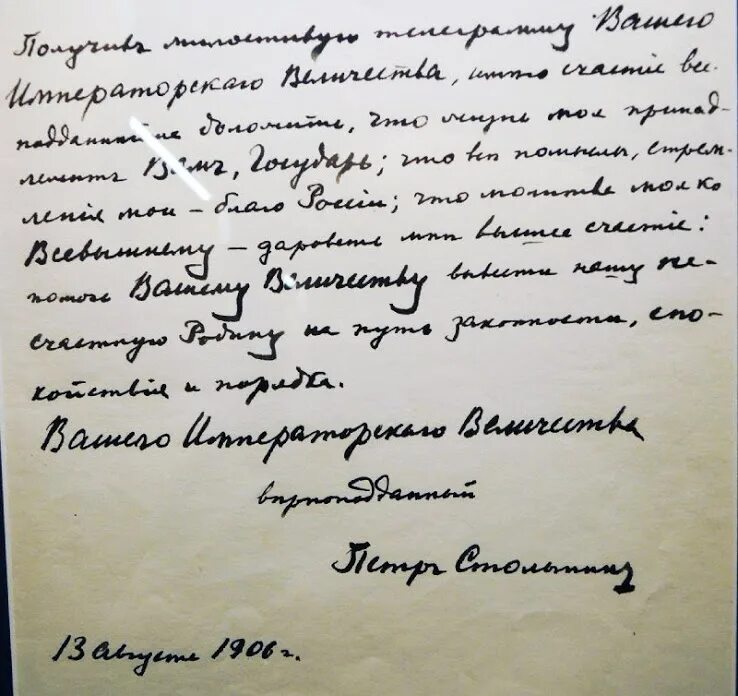 Получивъ милостивую телеграмму Вашего
Императорскаго Величества, имѣю счастіе все-
подданнѣйше доложить, что жизнь моя принад-
лежитъ Вамъ, Государь; что всѣ помыслы, стрем-
ленія мои – благо Россіи; что молитва моя ко
Всевышнему – даровать мнѣ высшее счастіе:
помочь Вашему Величеству вывести нашу не-
счастную Родину на путь законности, спо-
койствія и порядка.
Вашего Императорскаго Величества
вѣрноподданный
Петръ Столыпинъ
13 августа 1906 г.